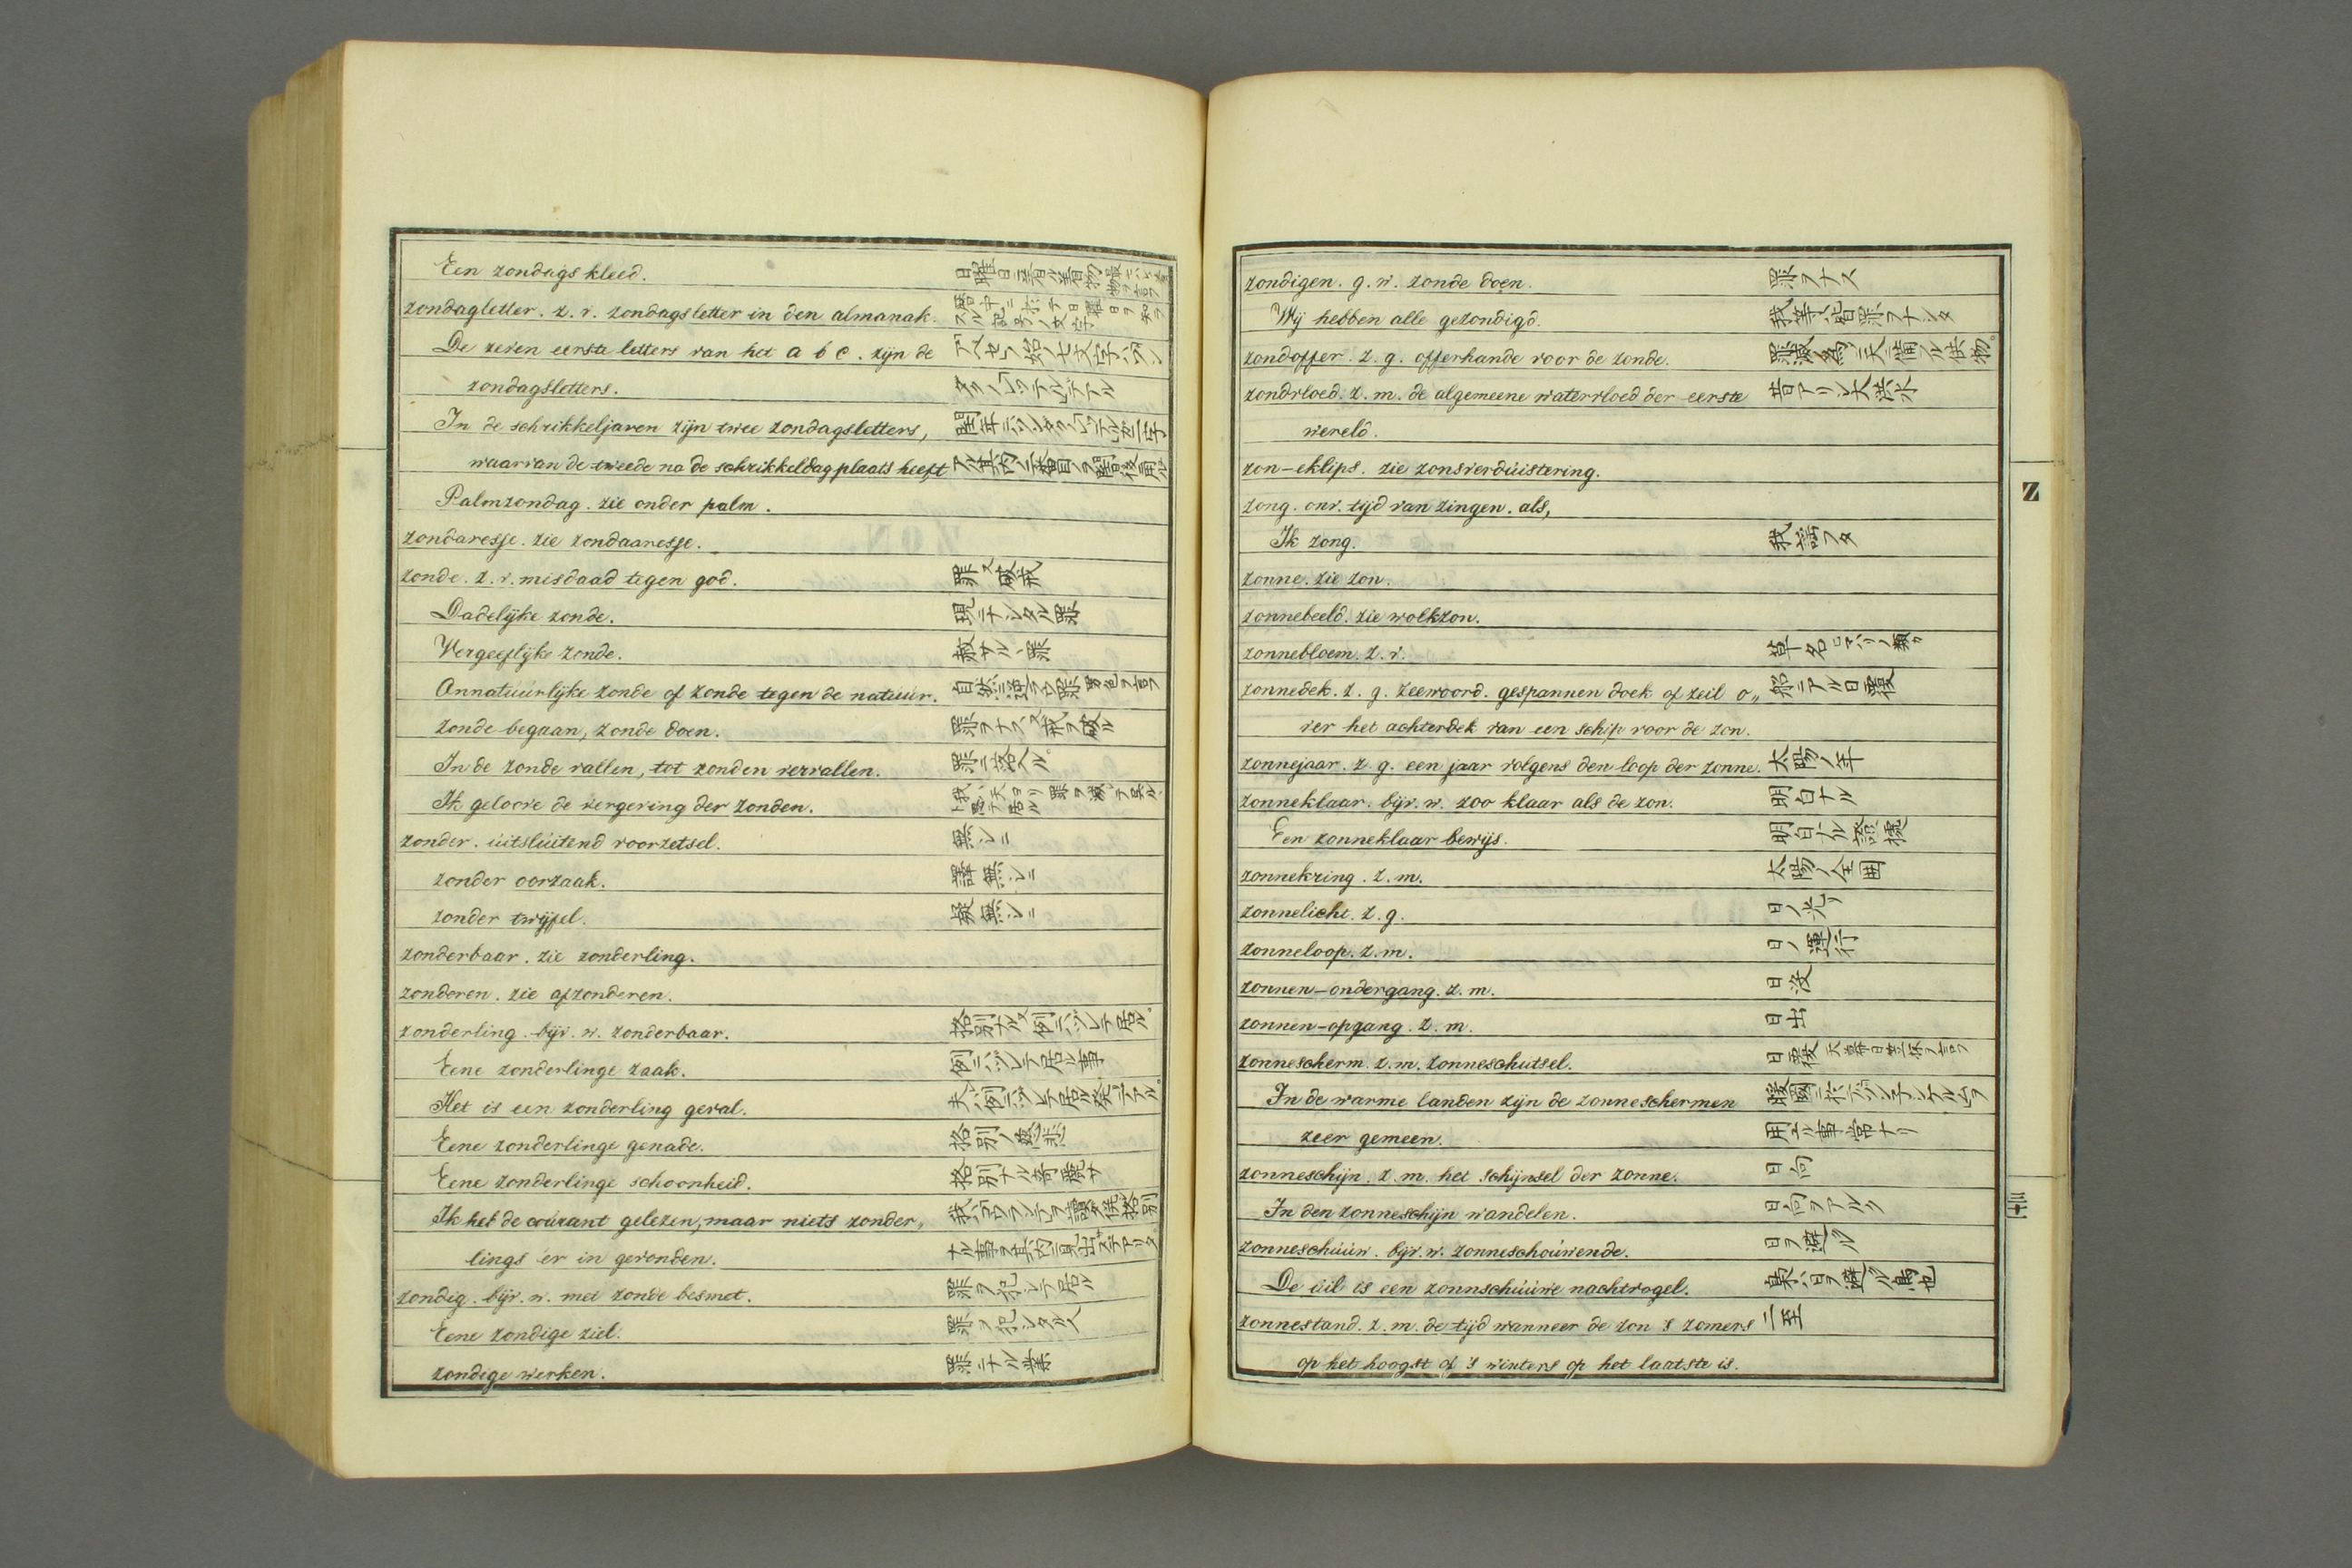 Een zondags kleed. 日曜日ニ着ル着物
zondagletter. z. v. zondagsletter in den almanak.
De zeven eerste letters van het a b c. zijn de
zondagsletters.
In de schrikkeljaren zijn twee zondagsletters,
waarvan de tweede na de schrikkeldag plaats heeft
Palmzondag. zie onder palm.
zondaresse. zie zondaaresse.
zonde. z. v. misdaad tegen god. 罪又破戒
Dadelijke zonde. 現ニナシタル罪
Vergeeflijke zonde. 赦サルヽ罪
Onnatúúrlijke zonde of zonde tegen de natuur.
zonde begaan, zonde doen. 罪ヲナス又戒ヲ破ル
In de zonde vallen, tot zonden vervallen. 罪ニ落入ル
Ik geloove de vergeving der zonden.
zonder. úitslúitend voorzetsel. 無シニ
zonder oorzaak. 譯無シニ
zonder twijfel. 疑無シニ
zonderbaar. zie zonderling.
zonderen. zie afzonderen.
zonderling. bijv. w. zonderbaar. 格別ナル又例ニハヅレテ居ル
Eene zonderlinge zaak. 例ニハヅレテ居ル事
Het is een zonderling geval.
Eene zonderlinge genade. 格別ノ慈悲
Eene zonderlinge schoonheid. 格別ナル奇麗サ
Ik heb de coúrant gelezen, maar niets zonder„
lings er in gevonden.
zondig. bijv. w. met zonde besmet. 罪ヲ犯シテ居ル
Eene zondige ziel. 罪ヲ犯シタル人
zondige werken. 罪ニナル業
zondigen. g. w. zonde doen. 罪ヲナス
Wij hebben alle gezondigd. 我等ハ皆罪ヲナシタ
zondoffer. z. g. offerhande voor de zonde.
zondvloed. z. m. de algemeene watervloed der eerste 昔アリシ大洪水
wereld.
zon-eklips. zie zonsverdúistering.
zong. onv. tijd van zingen. als,
Ik zong. 我謡フタ
zonne. zie zon.
zonnebeeld. zie wolkzon.
zonnebloem. z. v. 草名
zonnedek. z. g. zeewoord. gespannen doek of zeil o„ 船ニアル日覆
ver het achterdek van een schip voor de zon.
zonnejaar. z. g. een jaar volgens den loop der zonne. 太陽ノ年
zonneklaar. bijv. w. zoo klaar als de zon. 明白ナル
Een zonneklaar bewijs. 明白ナル證據
zonnekring. z. m. 太陽ノ全囲
zonnelicht. z. g. 日ノ光リ
zonneloop. z. m. 日ノ運行
zonnen-ondergang. z. m. 日没
zonnen-opgang. z. m. 日出
zonnescherm. z. m. zonneschutsel. 日覆
In de warme landen zijn de zonneschermen
zeer gemeen. 用ユル事常ナリ
zonneschijn. z. m. het schijnsel der zonne. 日向
In den zonneschijn wandelen. 日向ヲアルク
zonneschúúw. bijv. w. zonneschoúwende. 日ヲ避ル
De úil is een zonnschúúwe nachtvogel.
zonnestand. z. m. de tijd wanneer de zon 's zomers 二至
op het hoogst of 's winters op het laatste is.
Z